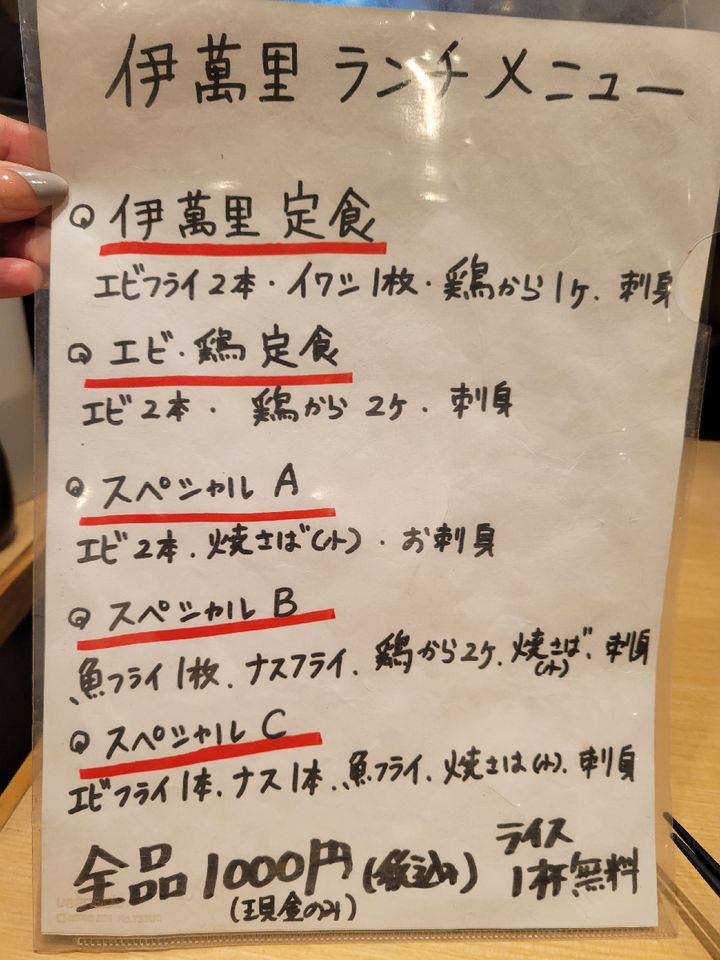 伊萬里 ランチメニュー
伊萬里 定食
エビフライ2本・イワシ1枚・鶏から1ヶ、刺身
エビ・鶏 定食
エビ2本・ 鶏から 2ヶ、刺身
スペシャル A
エビ2本、焼さば(小)・お刺身
スペシャル B
魚フライ1枚、ナスフライ、鶏から2ヶ、焼さば(小)、刺身
スペシャル C
エビフライ1本、ナス1本、魚フライ、焼さば(小)、刺身
全品1000円(税込み)
(現金のみ)
ライス
1杯無料